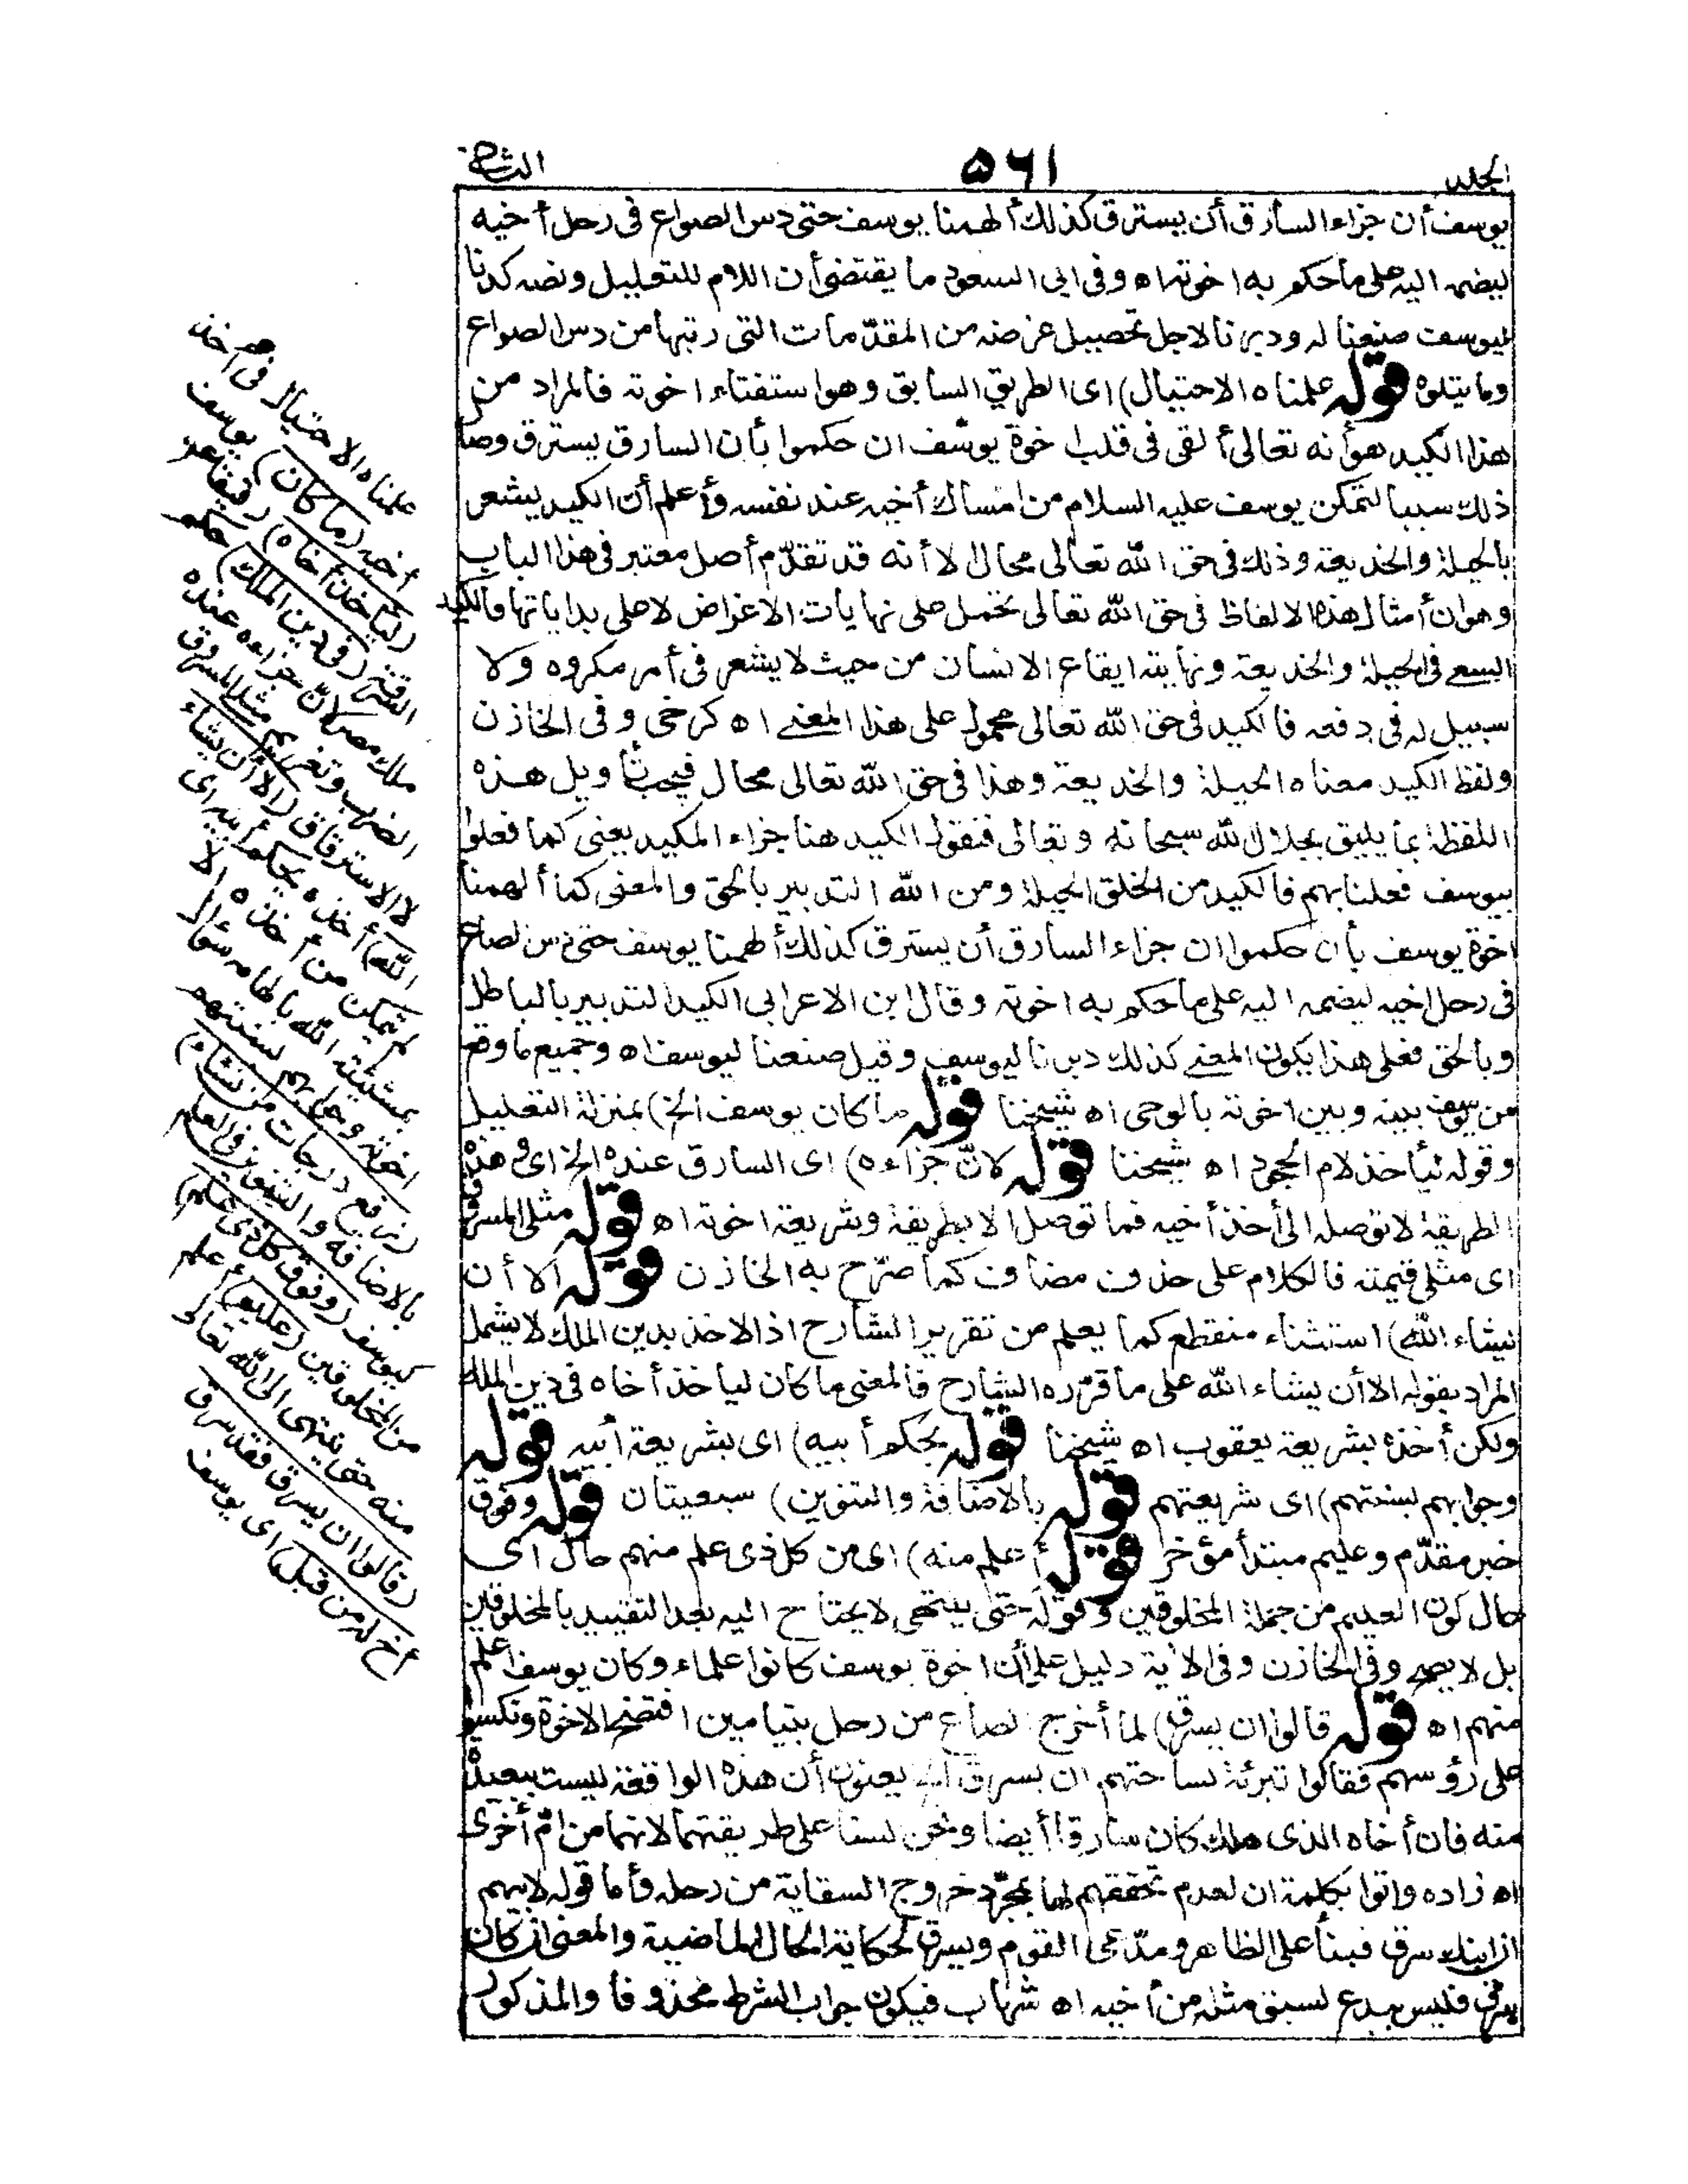 الجلد ٥٦١ الثانى
يوسف أن جزاء السارق أن يسترق كذلك ألهمنا يوسف حتى دس الصواع فى رحل أخيه
ليضمه اليه على ما حكم به اخوته اه وفى ابى السعود ما يقتضى أن اللام للتعليل ونصه كدنا
ليوسف صنعنا له ودبرنا لاجل تحصيل غرضه من المقدّمات التى رتبها من دس الصواع
وما يتلوه قوله علمناه الاحتيال) اى الطريق السابق وهو استفتاء اخوته فالمراد من
هذا الكيد هو أنه تعالى ألقى فى قلب اخوة يوسف ان حكموا بأن السارق يسترق وصا
ذلك سببا لتمكن يوسف عليه السلام من امساك أخيه عند نفسه وأعلم أن الكيد يشعر
بالحيلة والخديعة وذلك فى حق الله تعالى محال لا أنه قد تقدّم أصل معتبر فى هذا الباب
وهو ان أمثال هذه الالفاظ فى حق الله تعالى تحتمل على نهايات الاغراض لا على بداياتها فالكيد
السعى فى الحيلة والخديعة ونهايته ايقاع الانسان من حيث لا يشعر فى أمر مكروه ولا
سبيل له فى دفعه فالكيد فى حق الله تعالى محمول على هذا المعنى اه كرخى وفى الخازن
ولفظ الكيد معناه الحيلة والخديعة وهذا فى حق الله تعالى محال فيجب تأويل هذه
اللفظة بما يليق بجلال الله سبحانه وتعالى فنقول الكيد هنا جزاء المكيد يعنى كما فعلوا
بيوسف فعلنا بهم فالكيد من الخلق الحيلة ومن الله التدبير بالحق والمعنى كما ألهمنا
اخوة يوسف بأن حكموا ان جزاء السارق أن يسترق كذلك ألهمنا يوسف حتى دس لصاع
فى رحل اخيه ليضمه اليه على ما حكم به اخوته وقال ابن الاعرابى الكيد التدبير بالباطل
وبالحق فعلى هذا يكون المعنى كذلك دبرنا ليوسف وقيل صنعنا ليوسف اه وجميع ما وقع
من يوسف بينه وبين اخوته بالوحى اه شيخنا قوله ما كان يوسف الخ) بمنزلة التعليل
وقوله ليأخذ لام الجحود اه شيخنا قوله لانّ جزاءه) اى السارق عنده الخ اى فهذه
الطريقة لا توصله الى أخذ أخيه فما توصل الا بطريقة وشريعة اخوته اه قوله مثلى المسروق
اى مثلى قيمته فالكلام على حذف مضاف كما صرّح به الخازن قوله الا أن
يشاء الله) استثناء منقطع كما يعلم من تقرير الشارح اذ الاخذ بدين الملك لا يشمل
المراد بقوله الا أن يشاء الله على ما قرّره الشارح فالمعنى ما كان ليأخذ أخاه فى دين الملك
ولكن أخذه بشريعة يعقوب اه شيخنا قوله بحكم أبيه) اى بشريعة أبيه قوله
وجوابهم بسنتهم) اى شريعتهم قوله بالاضافة والتنوين) سبعيتان قوله وفوق
خبر مقدّم وعليم مبتدأ مؤخر قوله أعلم منه) اى من كل ذى علم منهم حال اى
حال كون العليم من جملة المخلوقين وقوله حتى ينتهى لا يحتاج اليه بعد التقييد بالمخلوقين
بل لا يصح وفى الخازن وفى الآية دليل على أن اخوة يوسف كانوا علماء وكان يوسف اعلم
منهم اه قوله قالوا ان يسرق) لما أخرج لصاع من رحل بنيامين افتضح الاخوة ونكسوا
على رؤسهم فقالوا تبرئة لساحتهم ان يسرق يعنون أن هذه الواقعة ليست ببعيدة
منه فان أخاه الذى هلك كان سارقا أيضا ونحن لسنا على طريقتهما لانهما من امّ أخرى
اه زاده واتوا بكلمة ان لعدم تحققهم لها بمجرّد خروج السقاية من رحله وأما قوله لابيهم
ان ابنك سرق فبنا على الظاهر ومدّعى القوم ويسرق لحكاية الحال الماضية والمعنى ان كان
سرق فليس ببدع لسبق مثله من أخيه اه شهاب فيكون جواب الشرط محذوفا والمذكور
علمناه الاحتيال فى أخذ
أخيه (ما كان) يوسف
(ليأخذ أخاه) رقيقا عن
السرقة (فى دين الملك) حكم
ملك مصر لانّ جزاءه عنده
الضرب وتغريم مثلى المسروق
لا الاسترقاق (الا أن يشاء
الله) أخذه بحكم أبيه اى
لم يتمكن من أخذه الا
بمشيئة الله بالهامه سؤال
اخوته وجوابهم بسنتهم
(نرفع درجات من نشاء)
بالاضافة والتنوين فى العلم
كيوسف (وفوق كل ذى علم)
من المخلوقين (عليم) أعلم
منه حتى ينتهى الى الله تعالى
(قالوا ان يسرق فقد سرق
أخ له من قبل) اى يوسف